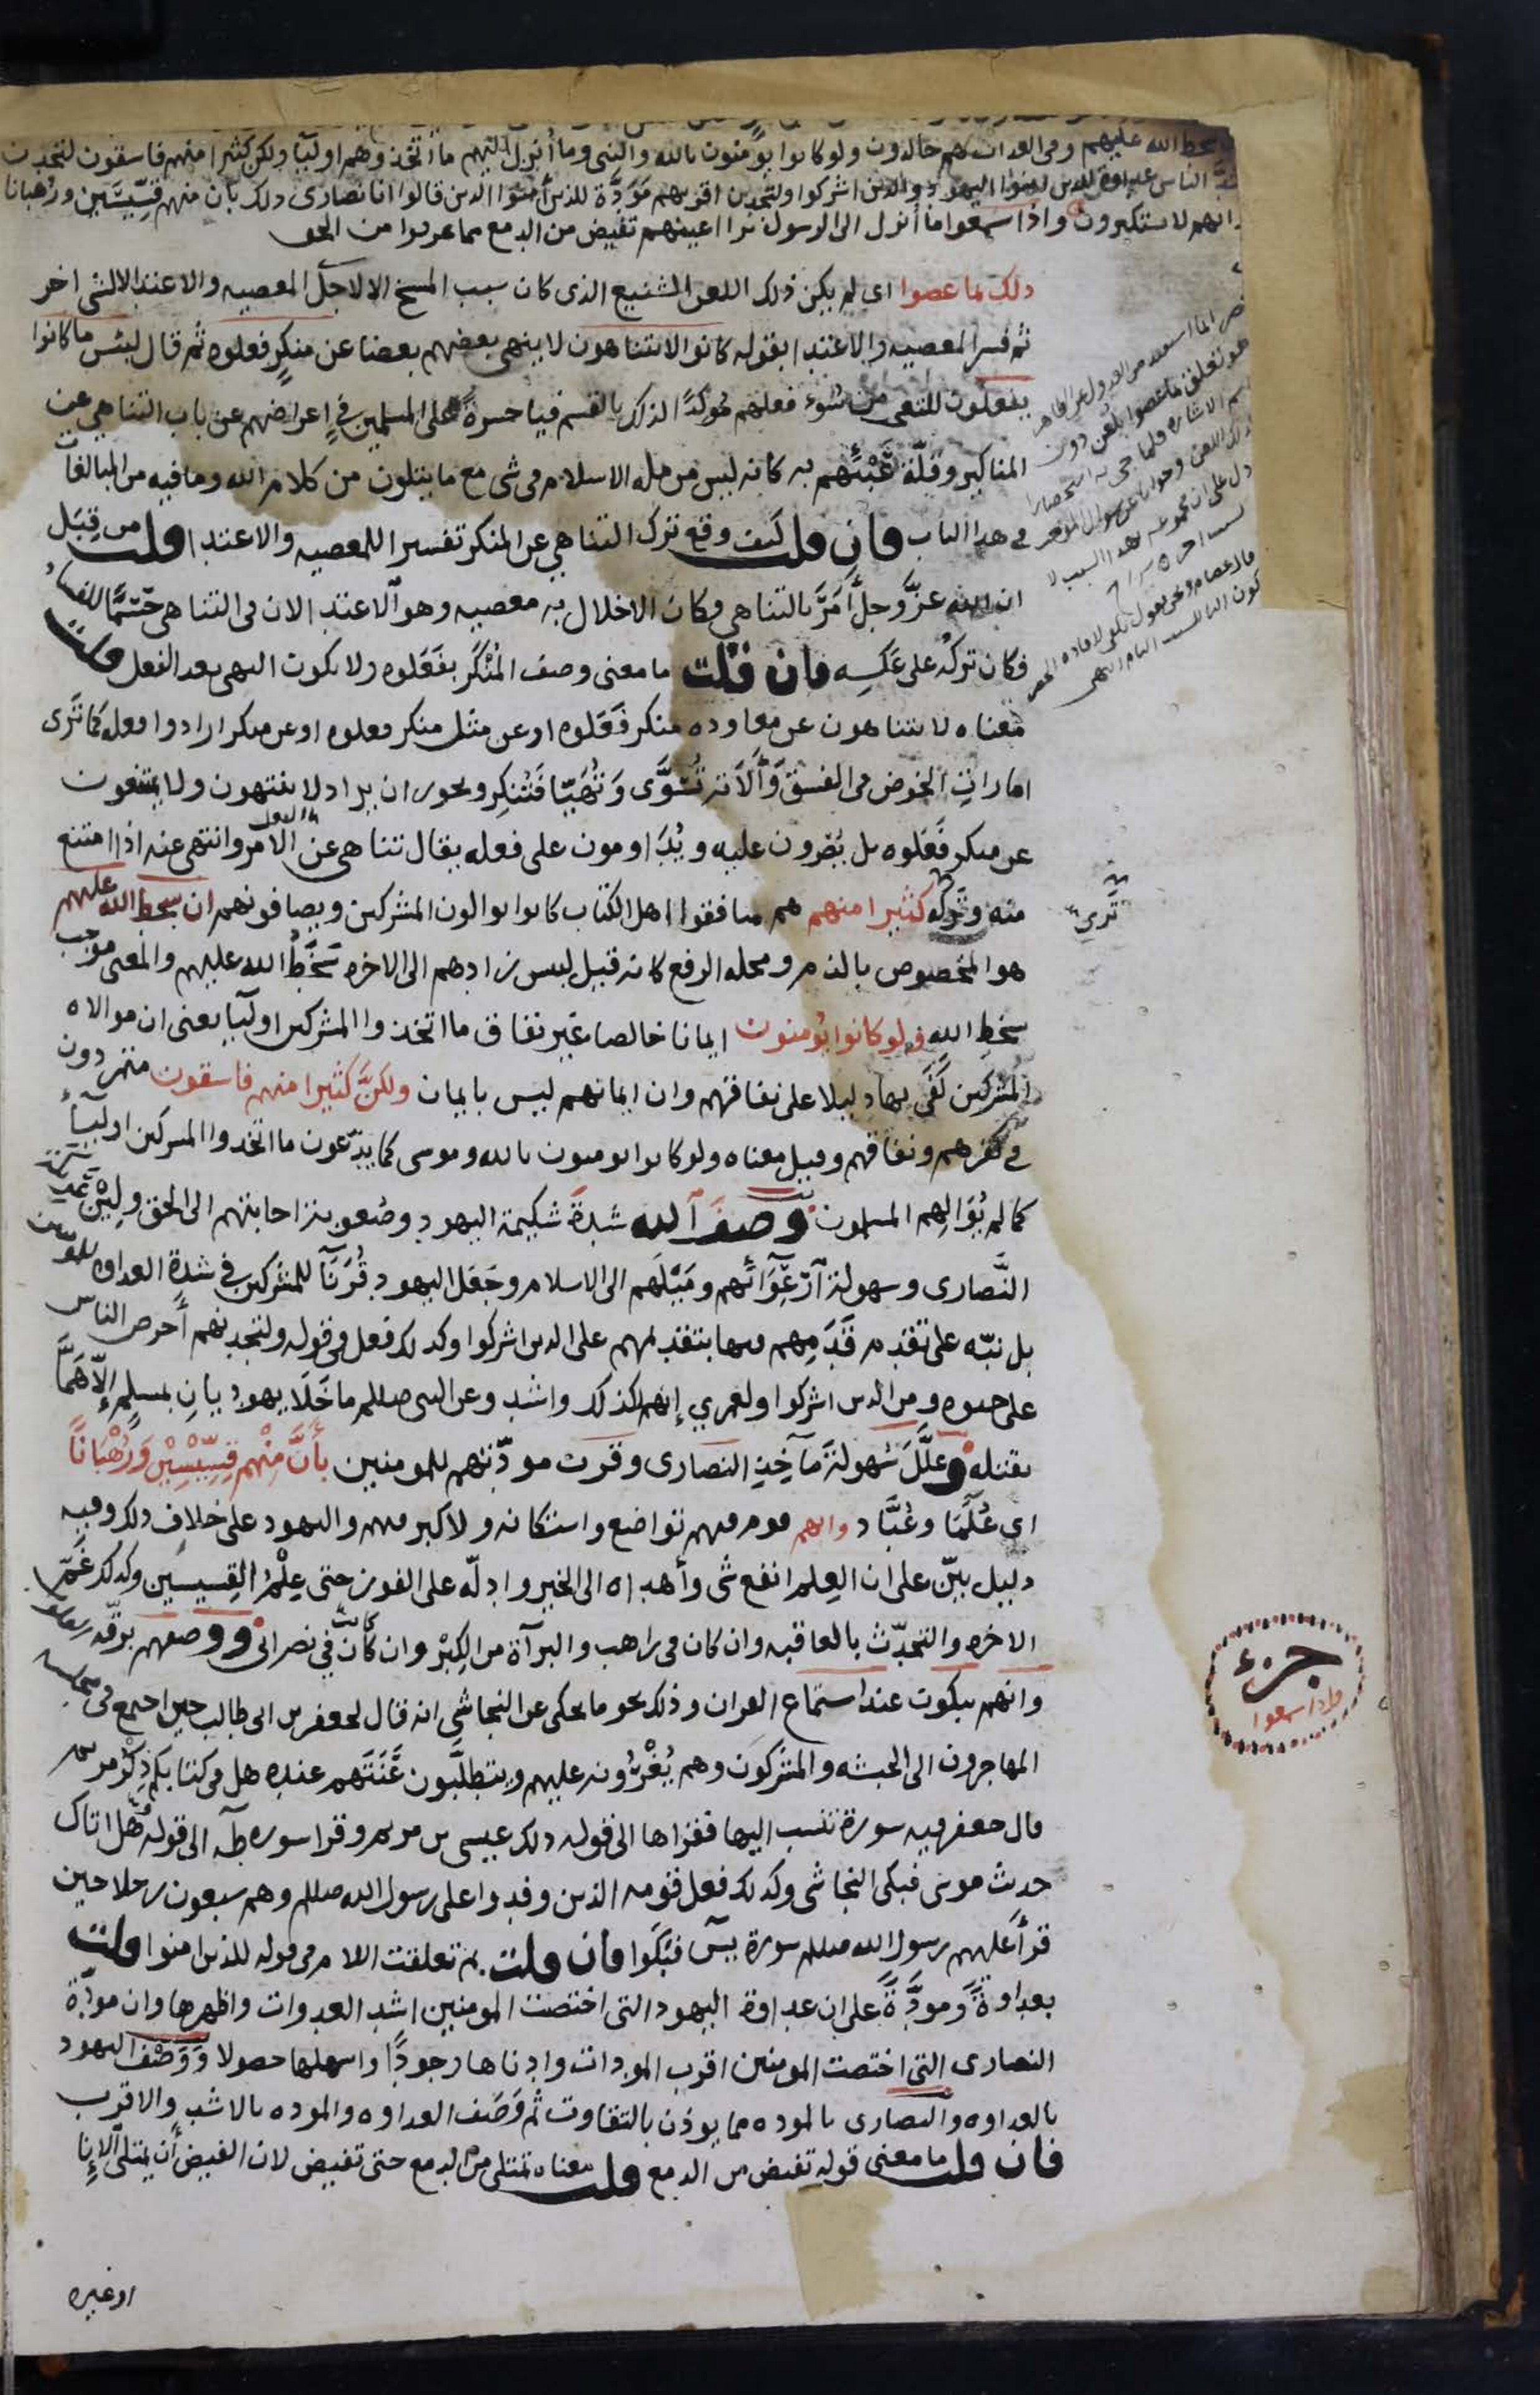 سخط الله عليهم وفى العذاب هم خالدون ولو كانوا يؤمنون بالله والنبى وما أنزل اليه ما اتخذوهم اوليآ ولكن كثيرا منهم فاسقون لتجدن
الناس عداوة للذين امنوا اليهود والذين اشركوا ولتجدن اقربهم مودة للذين آمنوا الذين قالوا انا نصارى ذلك بان منهم قسيسين ورهبانا
وانهم لا يستكبرون واذا سمعوا ما أنزل الى الرسول ترا اعينهم تفيض من الدمع مما عرفوا من الحق
ذلك بما عصوا اى لم يكن ذلك اللعن الشنيع الذى كان سبب المسخ الا لاجل المعصيه والاعتدا لا لشى اخر
ثم فسر المعصيه والاعتدا بقوله كانوا لا يتناهون لا ينهى بعضهم بعضا عن منكر فعلوه ثم قال لبئس ما كانوا
يفعلون للتعجب من سوء فعلهم مؤكدا لذلك بالقسم فيا حسرة على المسلمين فى إعراضهم عن باب التناهى عن
المناكير وقلة عبئهم به كانه ليس من ملة الاسلام فى شى مع ما يتلون من كلام الله وما فيه من المبالغات
فى هذا الباب فان قلت كيف وقع ترك التناهى عن المنكر تفسيرا للمعصيه والاعتدا قلت من قبل
ان الله عز وجل أمر بالتناهى فكان الاخلال به معصيه وهو الاعتدا لان فى التناهى حسما للفساد
فكان تركه على عكسه فان قلت ما معنى وصف المنكر بفعلوه ولا يكون النهى بعد الفعل قلت
معناه لا يتناهون عن معاوده منكر فعلوه او عن مثل منكر فعلوه او عن منكر ارادوا فعله كما ترى
امارات الخوض فى الفسق وآلاته تسوى وتهيا فتنكر ويجوز ان يراد لا ينتهون ولا يمتنعون
عن منكر فعلوه بل يصرون عليه ويداومون على فعله يقال تناهى عن الامر وانتهى عنه اذا امتنع
منه وتركه كثيرا منهم هم منافقوا اهل الكتاب كانوا يوالون المشركين ويصافونهم ان سخط الله عليهم
هو المخصوص بالذم ومحله الرفع كانه قيل لبئس زادهم الى الاخره سخط الله عليهم والمعنى موجب
سخط الله ولو كانوا يؤمنون ايمانا خالصا غير نفاق ما اتخذوا المشركين اوليآ يعنى ان موالاه
المشركين كفى بها دليلا على نفاقهم وان ايمانهم ليس بايمان ولكن كثيرا منهم فاسقون متمردون
فى كفرهم ونفاقهم وقيل معناه ولو كانوا يومنون بالله وموسى كما يدعون ما اتخذوا المشركين اوليآء
كما لم يوالهم المسلمون وصف الله شدة شكيمة اليهود وصعوبة اجابتهم الى الحق ولين عريكة
النصارى وسهولة ارعوائهم وميلهم الى الاسلام وجعل اليهود قرنآ للمشركين فى شدة العداوه للمومنين
بل نبه على تقدم قدمهم فيها بتقديمهم على الذين اشركوا وكذلك فعل فى قوله ولتجدنهم أحرص الناس
على حيوه ومن الذين اشركوا ولعمري إنهم لكذلك واشد وعن النبى صللم ما خلا يهوديان بمسلم إلا هما
بقتله وعلل سهولة مآخذ النصارى وقرب مودتهم للمومنين بأن منهم قسيسين ورهبانا
اى علما وعبادا وانهم قوم فيهم تواضع واستكانه ولا كبر فيهم واليهود على خلاف ذلك وفيه
دليل بين على ان العلم انفع شى وأهداه الى الخير وادله على الفوز حتى علم القسيسين وكذلك غم
الاخره والتحدث بالعاقبه وان كان فى راهب والبرآة من الكبر وان كانت فى نصرانى ووصفهم برقة القلوب
وانهم يبكون عند استماع القران وذلك نحو ما يحكى عن النجاشى انه قال لجعفر بن ابى طالب حين اجتمع فى مجلسه
المهاجرون الى الحبشه والمشركون وهم يغرونه عليهم ويتطلبون عنتهم عنده هل فى كتابكم ذكر مريم
قال جعفر فيه سورة تنسب اليها فقراها الى قوله ذلك عيسى بن مريم وقرا سوره طه الى قوله هل اتاك
حديث موسى فبكى النجاشى وكذلك فعل قومه الذين وفدوا على رسول الله صللم وهم سبعون رجلا حين
قرأ عليهم رسول الله صللم سورة يس فبكوا فان قلت بم تعلقت اللام فى قوله للذين امنوا قلت
بعداوة ومودة على ان عداوة اليهود التى اختصت المومنين اشد العداوات واظهرها وان مودة
النصارى التى اختصت المومنين اقرب المودات وادناها وجودا واسهلها حصولا ووصف اليهود
بالعداوه والنصارى بالموده مما يوذن بالتفاوت ثم وصف العداوه والموده بالاشد والاقرب
فان قلت ما معنى قوله تفيض من الدمع قلت معناه تمتلى من الدمع حتى تفيض لان الفيض أن يمتلى الانا
او غيره
ترى
جزء
واذا سمعوا